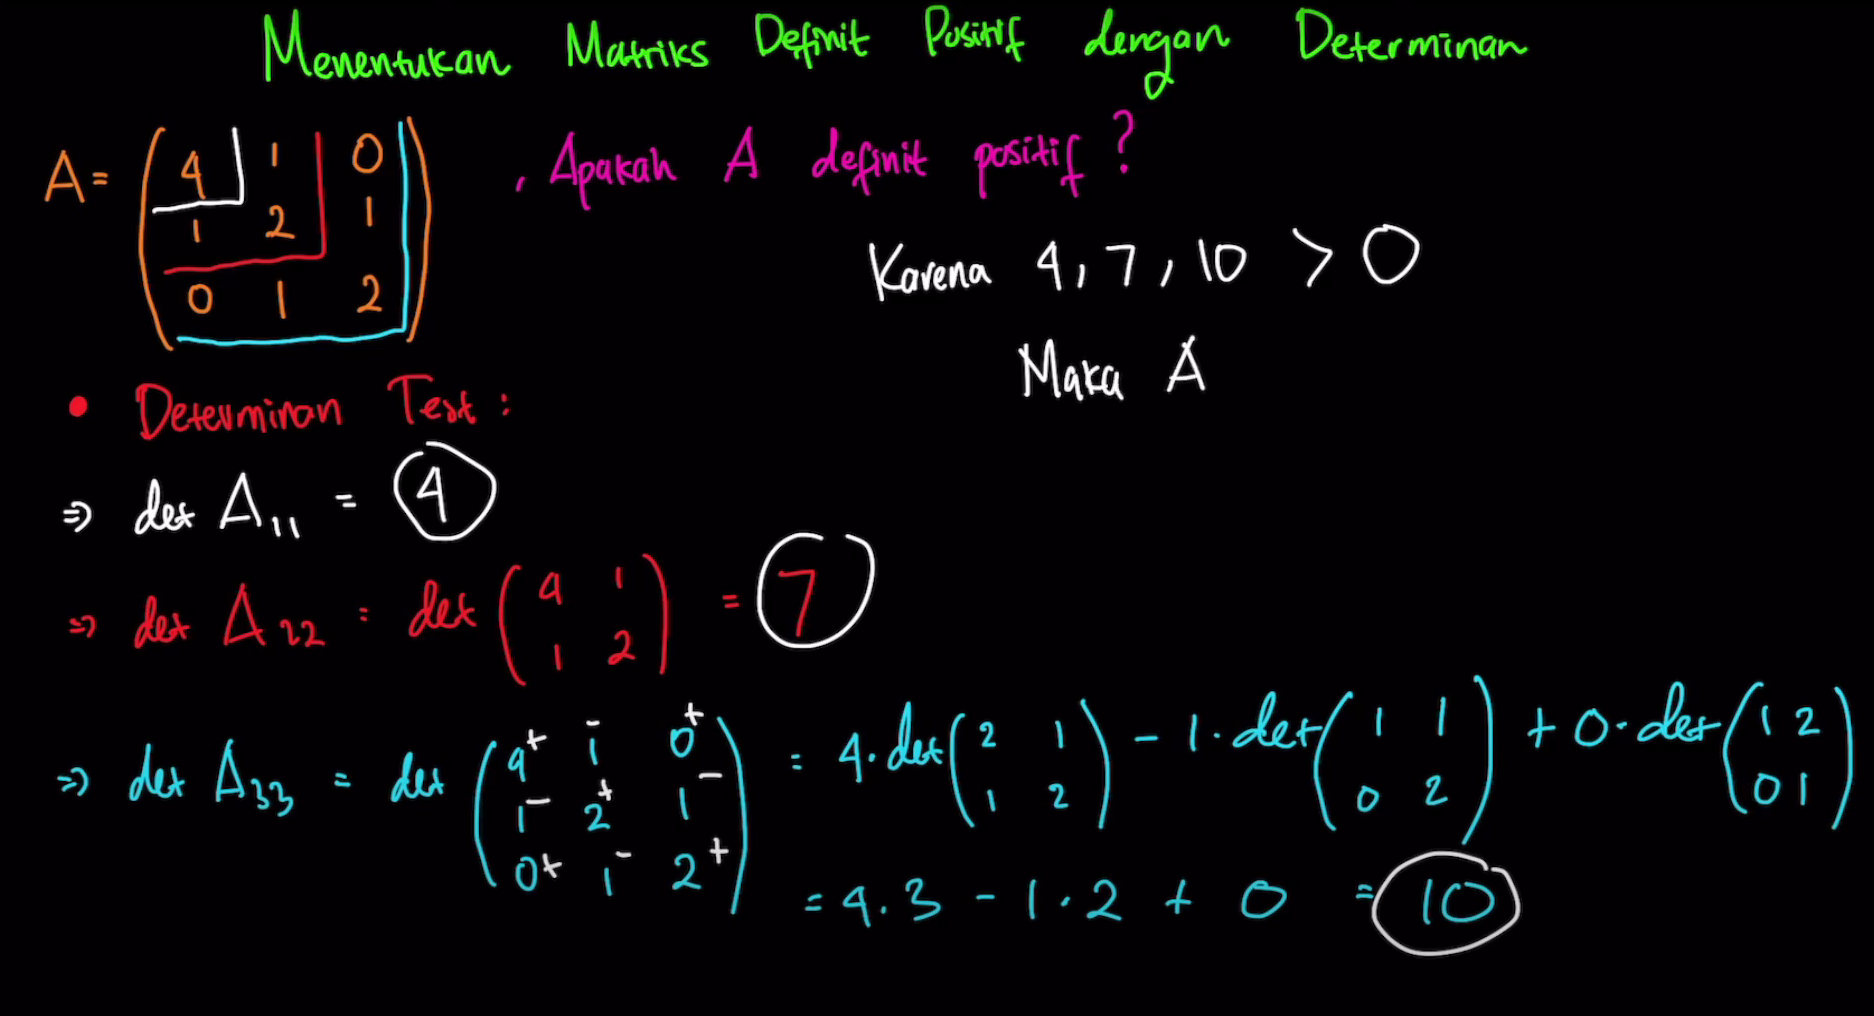 Menentukan Matriks Definit Positif dengan Determinan
A = ( 4 1 0
1 2 1
0 1 2 ) , Apakah A definit positif ?
Karena 4, 7, 10 > 0
Maka A
• Determinan Test :
⇒ det A₁₁ = 4
⇒ det A₂₂ = det ( 4 1
1 2 ) = 7
⇒ det A₃₃ = det ( 4⁺ 1⁻ 0⁺
1⁻ 2⁺ 1⁻
0⁺ 1⁻ 2⁺ ) = 4 · det ( 2 1
1 2 ) − 1 · det ( 1 1
0 2 ) + 0 · det ( 1 2
0 1 )
= 4 . 3 − 1 . 2 + 0 = 10